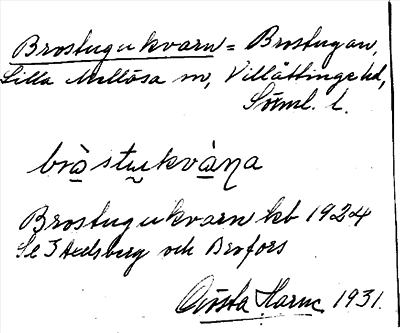 Brostugukvarn = Brostugan,
Lilla Mellösa sn, Villåttinge hd,
Söml. l.
bròstu̮kvàṇa
Brostugukvarn kb 1924
Se Stadsberg och Brofors
Gösta Harne 1931.